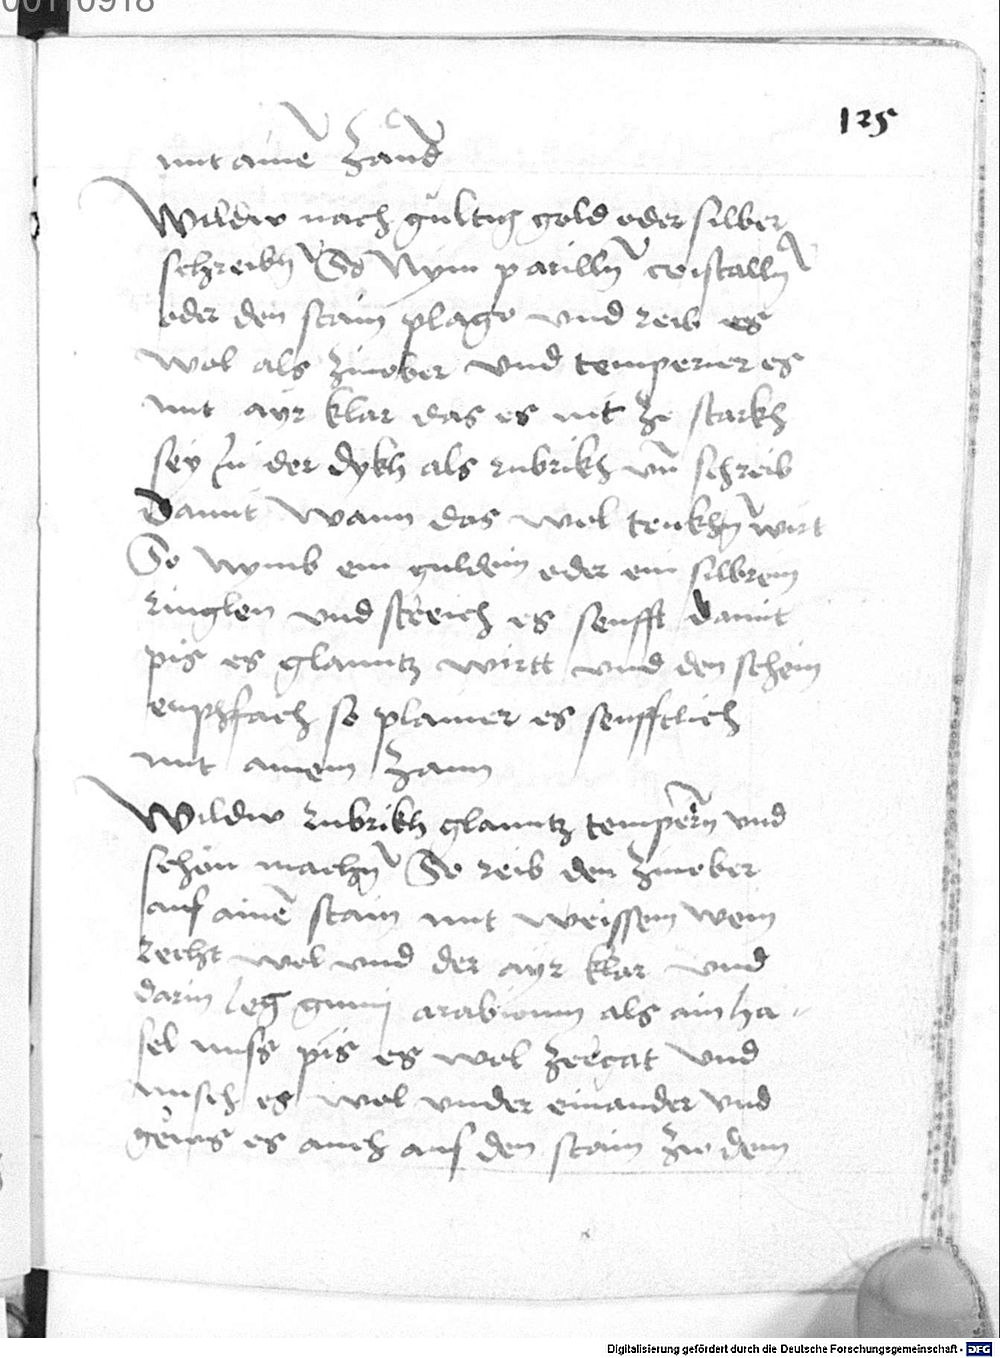 00110918
125
mit ainē zand
Wildw nach gultig gold oder silber
schreibn So Nym parilln cristalln
oder den stain plago vnd reib es
wol als zinober vnd temperier es
mit ayr klar das es nit ze starkh
sey In der dykh als rubrikh vn̄ schreib
damit Wann das wol trukhn wirt
So nymb ein guldein oder ein silbrein
ringlen vnd streich es senfft damit
pis es glanntz wirtt vnd den schein
enphfach so planier es senfftlich
mit ainem zann
Wildw rubrikh glanntz tempern vnd
schon machn So reib den zinober
auf ainē stain mit weissem wein
recht wol vnd der ayr klar vnd
darin leg gumi arabicum als ain ha-
sel nuss pis es wol zergat vnd
misch es wol vnder einander vnd
gews es auch auf den stain zw dem
Digitalisierung gefördert durch die Deutsche Forschungsgemeinschaft - DFG